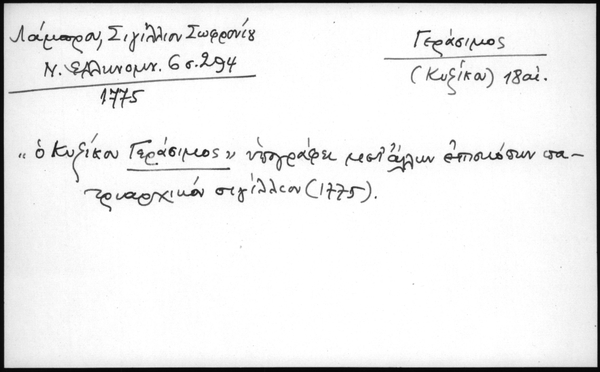 Λάμπρου, Σιγίλλιον Σωφρονίου
Ν. Ελληνομν. 6 σ. 294
1775
Γεράσιμος
(Κυζίκου) 18 αἰ.
"ὁ Κυζίκου Γεράσιμος" ὑπογράφει μετ' ἄλλων ἐπισκόπων πα-
τριαρχικόν σιγίλλιον (1775).